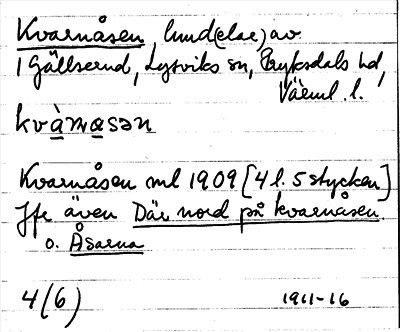 Kvarnåsen lund(elae) av
1 Gällserud, Lysviks sn, Fryksdals hd,
Värml. l.
kvàrnasən
Kvarnåsen ml 1909 [4 l. 5 stycken]
Jfr även Där nord på kvarnåsen
o. Åsarna
4(6) 1911-16